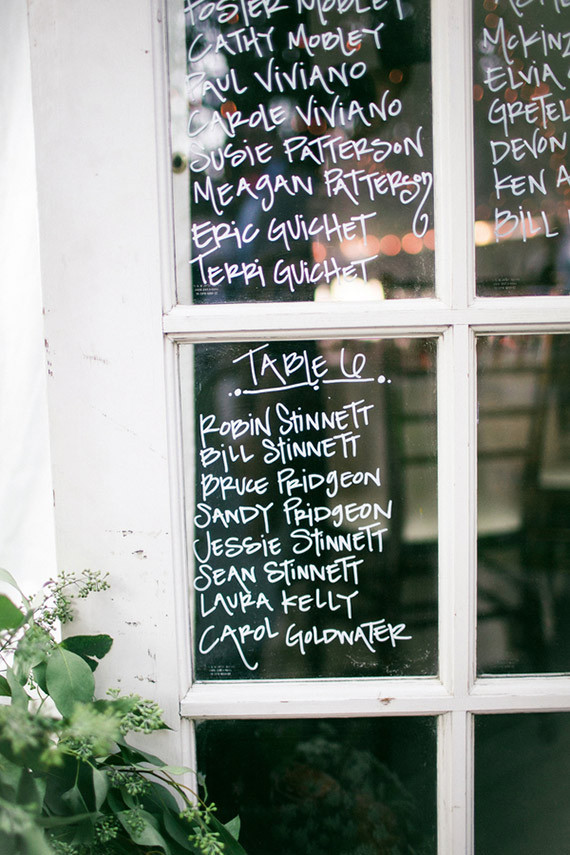 FOSTER MOBLEY
CATHY MOBLEY
PAUL VIVIANO
CAROLE VIVIANO
SUSIE PATTERSON
MEAGAN PATTERSON
ERIC GUICHET
TERRI GUICHET
TABLE 6
ROBIN STINNETT
BILL STINNETT
BRUCE PRIDGEON
SANDY PRIDGEON
JESSIE STINNETT
SEAN STINNETT
LAURA KELLY
CAROL GOLDWATER
MCKINZ
ELVIA
GRETEL
DEVON
KEN A
BILL